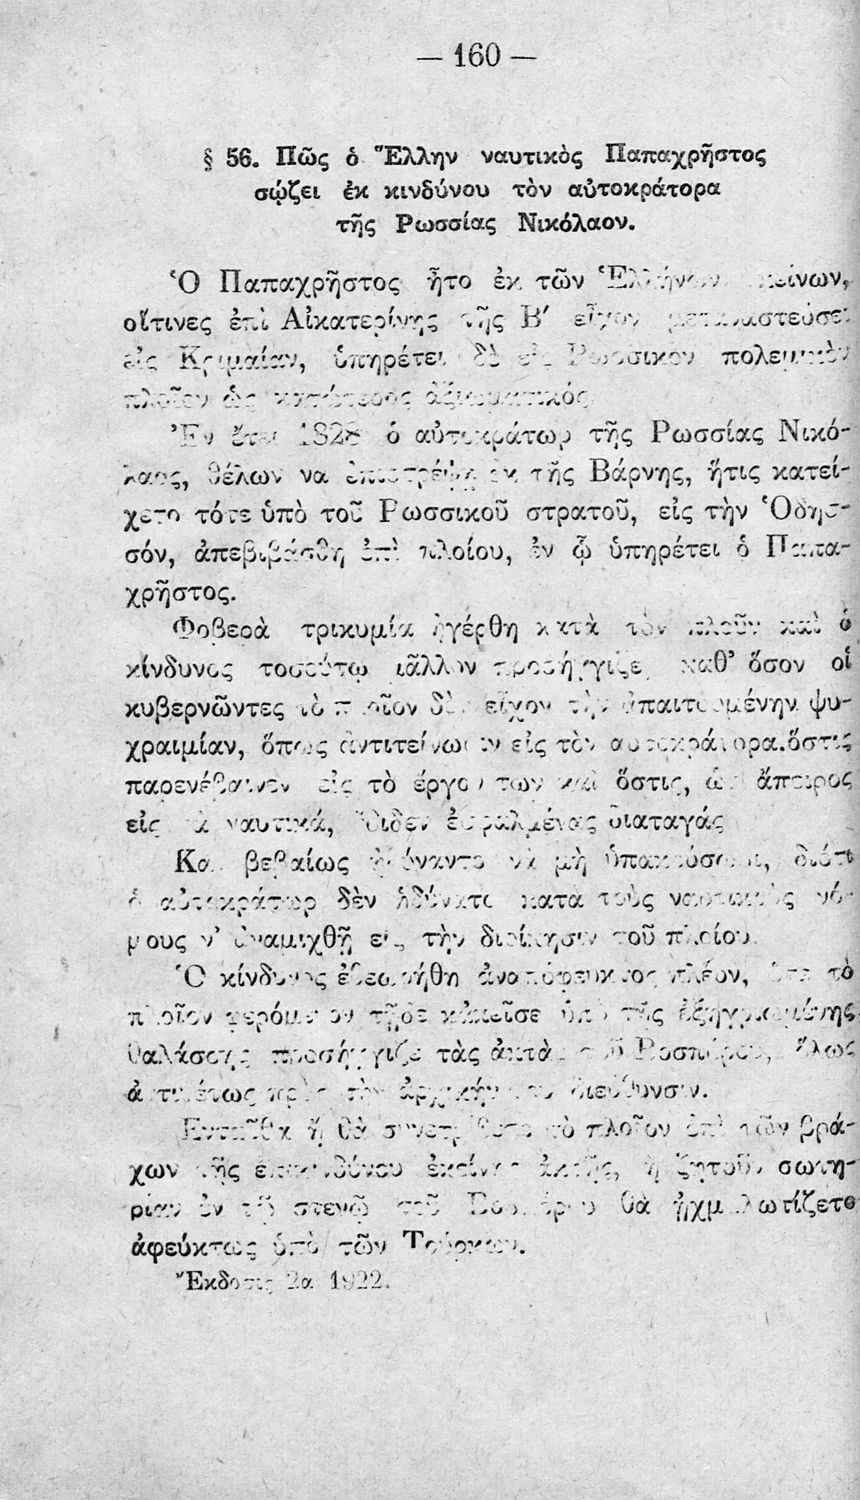 — 160 —
§ 56. Πῶς ὁ Ἕλλην ναυτικὸς Παπαχρῆστος
σῴζει ἐκ κινδύνου τὸν αὐτοκράτορα
τῆς Ρωσσίας Νικόλαον.
Ὁ Παπαχρῆστος ἦτο ἐκ τῶν Ἑλλήνων
οἵτινες ἐπὶ Αἰκατερίνης τῆς Β′ εἶχον μεταναστεύσει
εἰς Κριμαίαν, ὑπηρέτει δὲ εἰς Ρωσσικὸν πολεμικὸν
πλοῖον ὡς κατώτερος ἀξιωματικός.
Ἐν ἔτει 1828 ὁ αὐτοκράτωρ τῆς Ρωσσίας Νικό-
λαος, θέλων να ἐπιστρέψῃ ἐκ τῆς Βάρνης, ἥτις κατεί-
χετο τότε ὑπὸ τοῦ Ρωσσικοῦ στρατοῦ, εἰς τὴν Ὀδησ-
σόν, ἀπεβιβάσθη ἐπὶ πλοίου, ἐν ᾧ ὑπηρέτει ὁ Παπα-
χρῆστος.
Φοβερὰ τρικυμία ἠγέρθη κατὰ τὸν πλοῦν καὶ ὁ
κίνδυνος τοσούτῳ μᾶλλον προσήγγιζε, καθ' ὅσον οἱ
κυβερνῶντες τὸ πλοῖον δὲν εἶχον τὴν ἀπαιτουμένην ψυ-
χραιμίαν, ὅπως ἀντιτείνωσιν εἰς τὸν αὐτοκράτορα.ὅστις
παρενέβαινεν εἰς τὸ ἔργον των καὶ ὅστις, ὡς ἄπειρος
εἰς τὰ ναυτικά, ἔδιδεν ἐσφαλμένας διαταγάς
Καὶ βεβαίως ἠδύναντο νὰ μὴ ὑπακούσωσι, διότι
ὁ αὐτοκράτωρ δὲν ἠδύνατο κατα τοὺς ναυτικοὺς νό-
μους ν' ἀναμιχθῇ εἰς τὴν διοίκησιν τοῦ πλοίου.
Ὁ κίνδυνος ἐθεωρήθη ἀναπόφευκτος πλέον, ὅτε τὸ
πλοῖον φερόμενον τῇδε κἀκεῖσε ὑπὸ τῆς ἐξηγριωμένης
θαλάσσης προσήγγιζε τὰς ἀκτὰς τοῦ Βοσπόρου, ὅλως
ἀντιθέτως πρὸς τὴν ἀρχικήν του διεύθυνσιν.
Ἐνταῦθα ἢ θὰ συνετρίβετο τὸ πλοῖον ἐπὶ τῶν βρά-
χων τῆς ἐπικινδύνου ἐκείνης ἀκτῆς, ἢ ζητοῦν σωτη-
ρίαν ἐν τῷ στενῷ τοῦ Βοσπόρου θὰ ᾐχμαλωτίζετο
ἀφεύκτως ὑπὸ τῶν Τούρκων.
Ἔκδοσις 2α 1922.